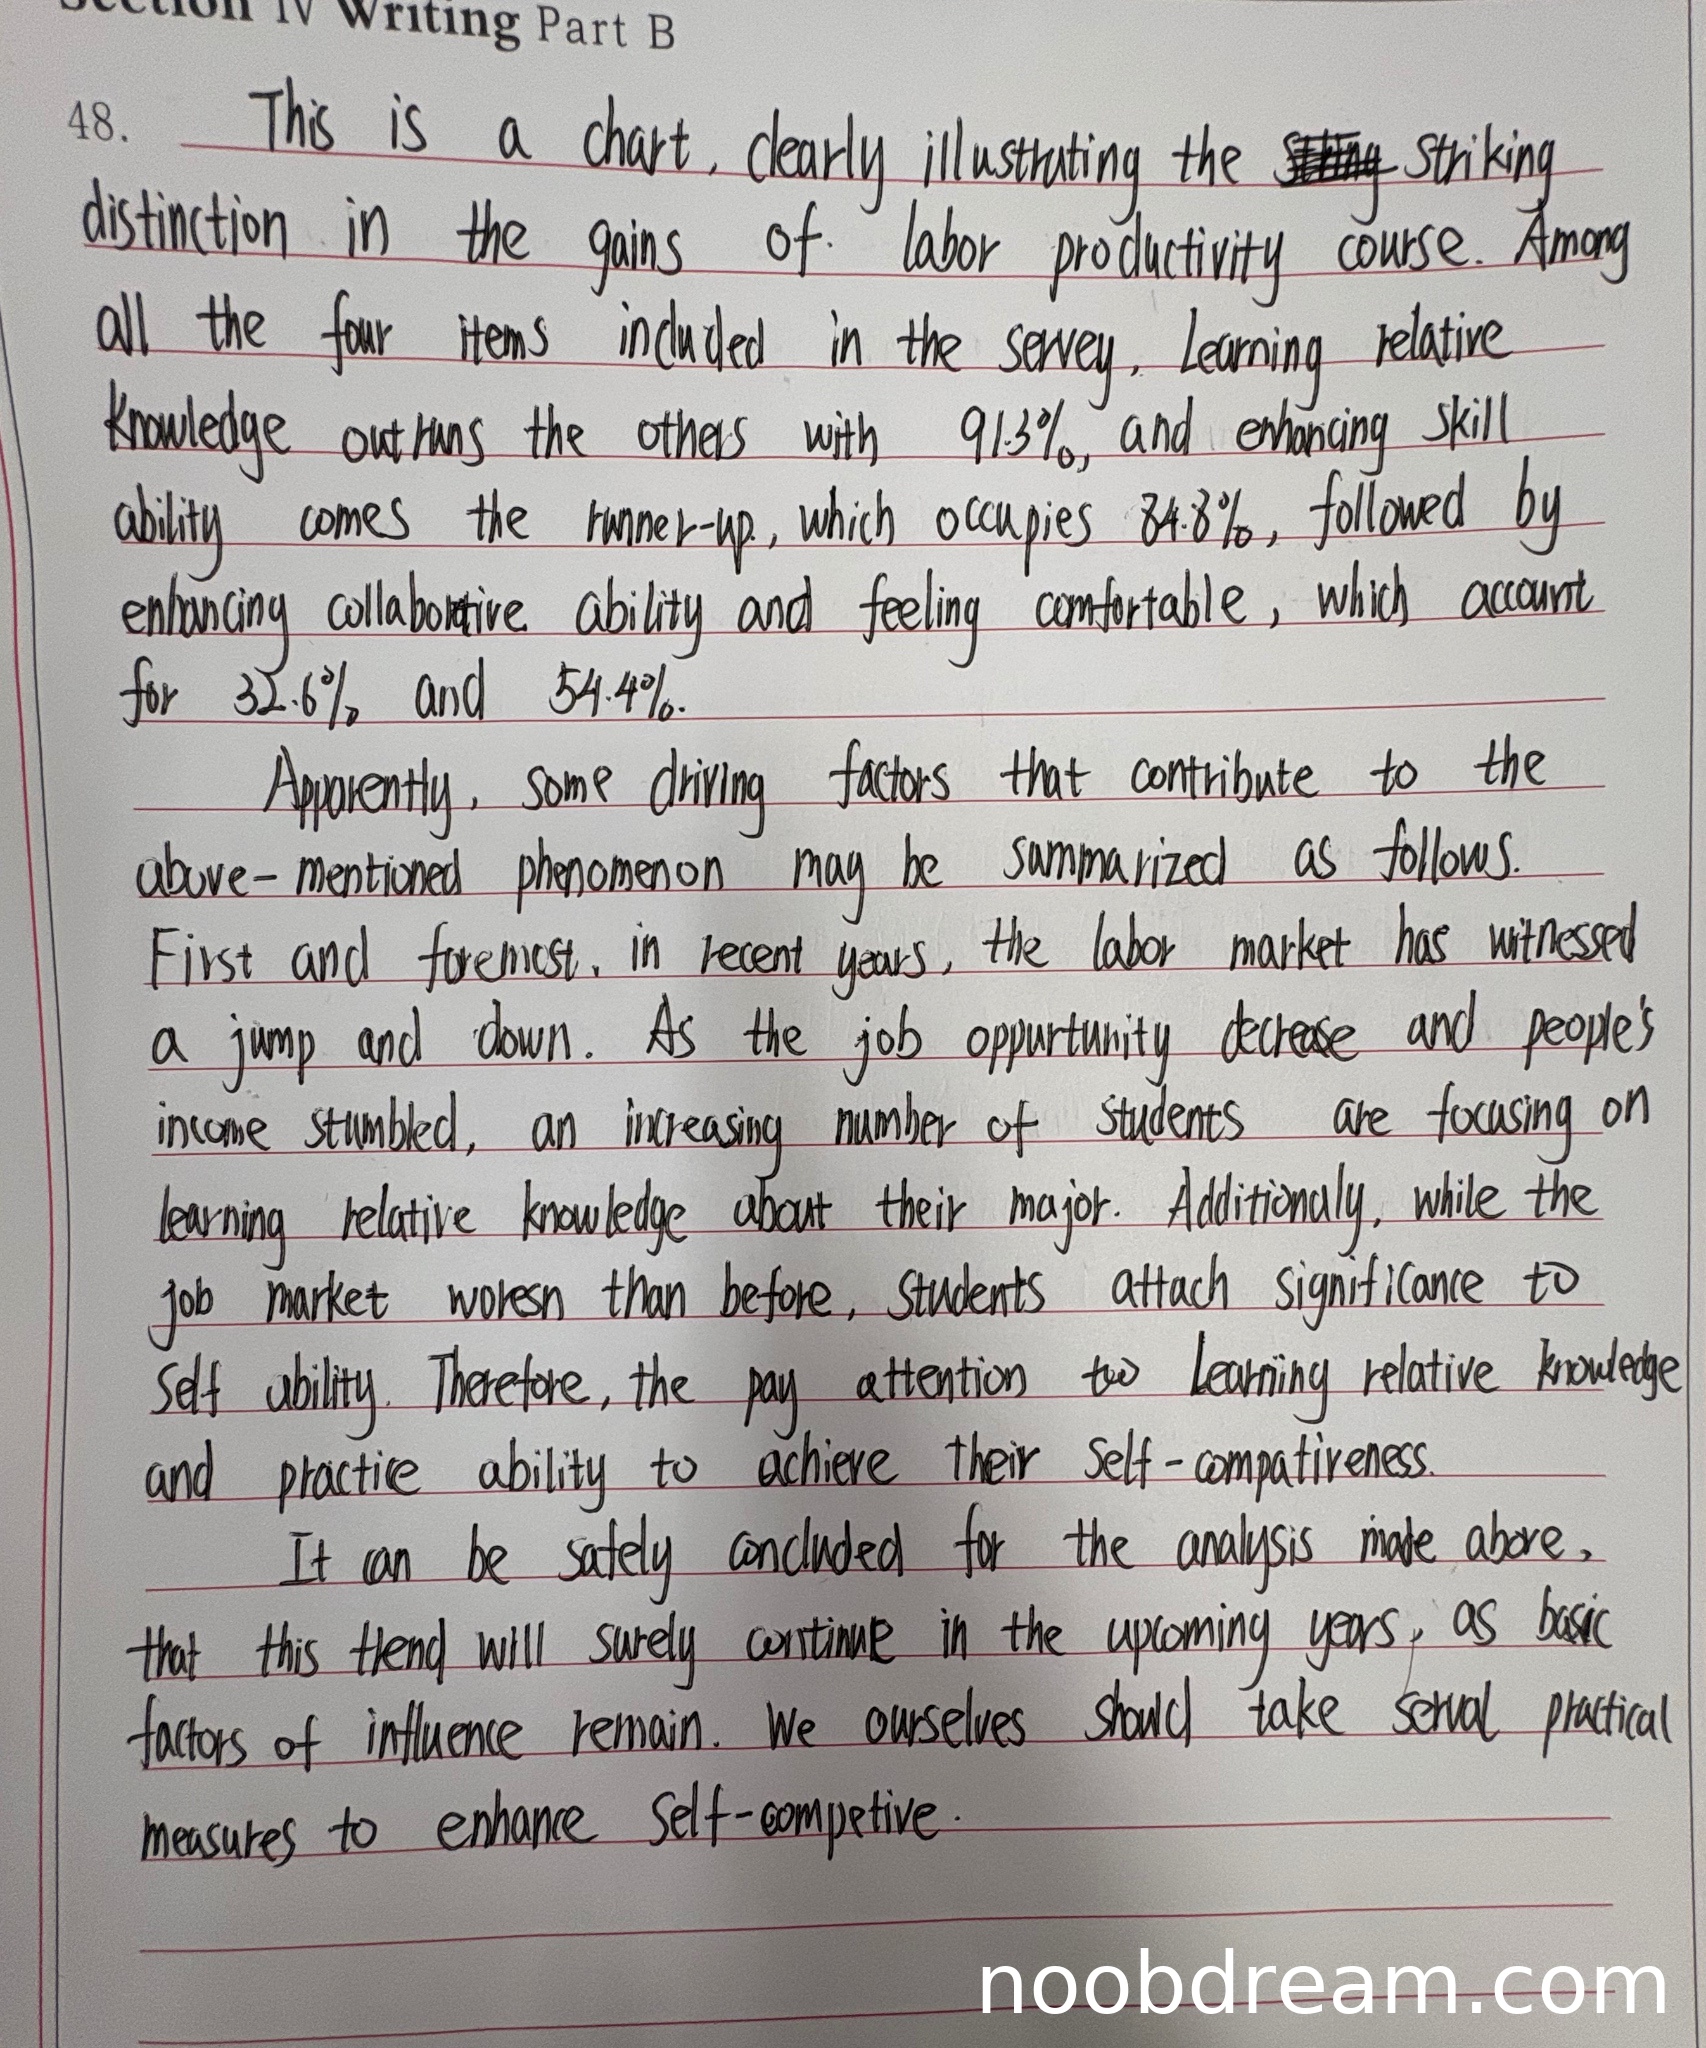 Section IV Writing Part B
48. This is a chart, clearly illustrating the striking
distinction in the gains of labor productivity course. Among
all the four items included in the servey, learning relative
knowledge outruns the others with 91.3%, and enhancing skill
ability comes the runner-up, which occupies 84.8%, followed by
enhancing collaborative ability and feeling comfortable, which account
for 32.6% and 54.4%.
Apparently, some driving factors that contribute to the
above-mentioned phenomenon may be summarized as follows.
First and foremost, in recent years, the labor market has witnessed
a jump and down. As the job oppurtunity decrease and people's
income stumbled, an increasing number of students are focusing on
learning relative knowledge about their major. Additionaly, while the
job market woresn than before, students attach significance to
self ability. Therefore, the pay attention to learning relative knowledge
and practice ability to achieve their self-compativeness.
It can be safely concluded for the analysis made above,
that this trend will surely continue in the upcoming years, as basic
factors of influence remain. We ourselves should take serval practical
measures to enhance self-competive.
noobdream.com